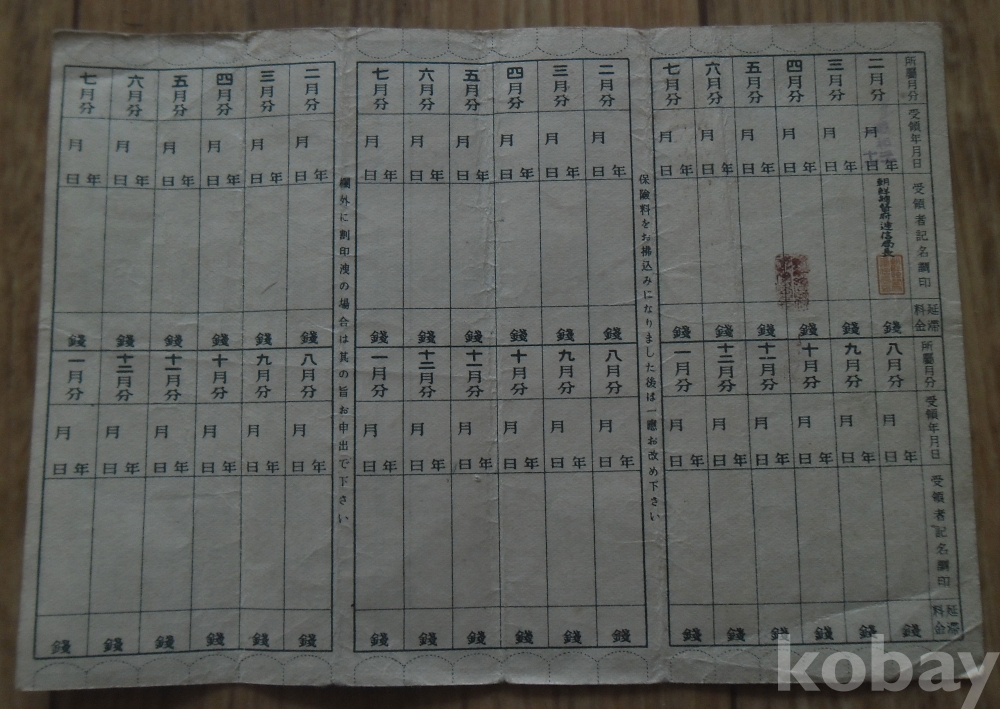 所屬月分
受領年月日
受領者記名調印
延滯料金
二月分
月
年
日
朝鮮總督府遞信局長
錢
三月分
月
年
日
錢
四月分
月
年
日
錢
五月分
月
年
日
錢
六月分
月
年
日
錢
七月分
月
年
日
錢
所屬月分
受領年月日
受領者記名調印
延滯料金
八月分
月
年
日
錢
九月分
月
年
日
錢
十月分
月
年
日
錢
十一月分
月
年
日
錢
十二月分
月
年
日
錢
一月分
月
年
日
錢
保險料をお拂込みになりました後は一應お改め下さい
二月分
月
年
日
錢
三月分
月
年
日
錢
四月分
月
年
日
錢
五月分
月
年
日
錢
六月分
月
年
日
錢
七月分
月
年
日
錢
八月分
月
年
日
錢
九月分
月
年
日
錢
十月分
月
年
日
錢
十一月分
月
年
日
錢
十二月分
月
年
日
錢
一月分
月
年
日
錢
欄外に割印洩の場合は其の旨お申出で下さい
二月分
月
年
日
錢
三月分
月
年
日
錢
四月分
月
年
日
錢
五月分
月
年
日
錢
六月分
月
年
日
錢
七月分
月
年
日
錢
八月分
月
年
日
錢
九月分
月
年
日
錢
十月分
月
年
日
錢
十一月分
月
年
日
錢
十二月分
月
年
日
錢
一月分
月
年
日
錢
kobay